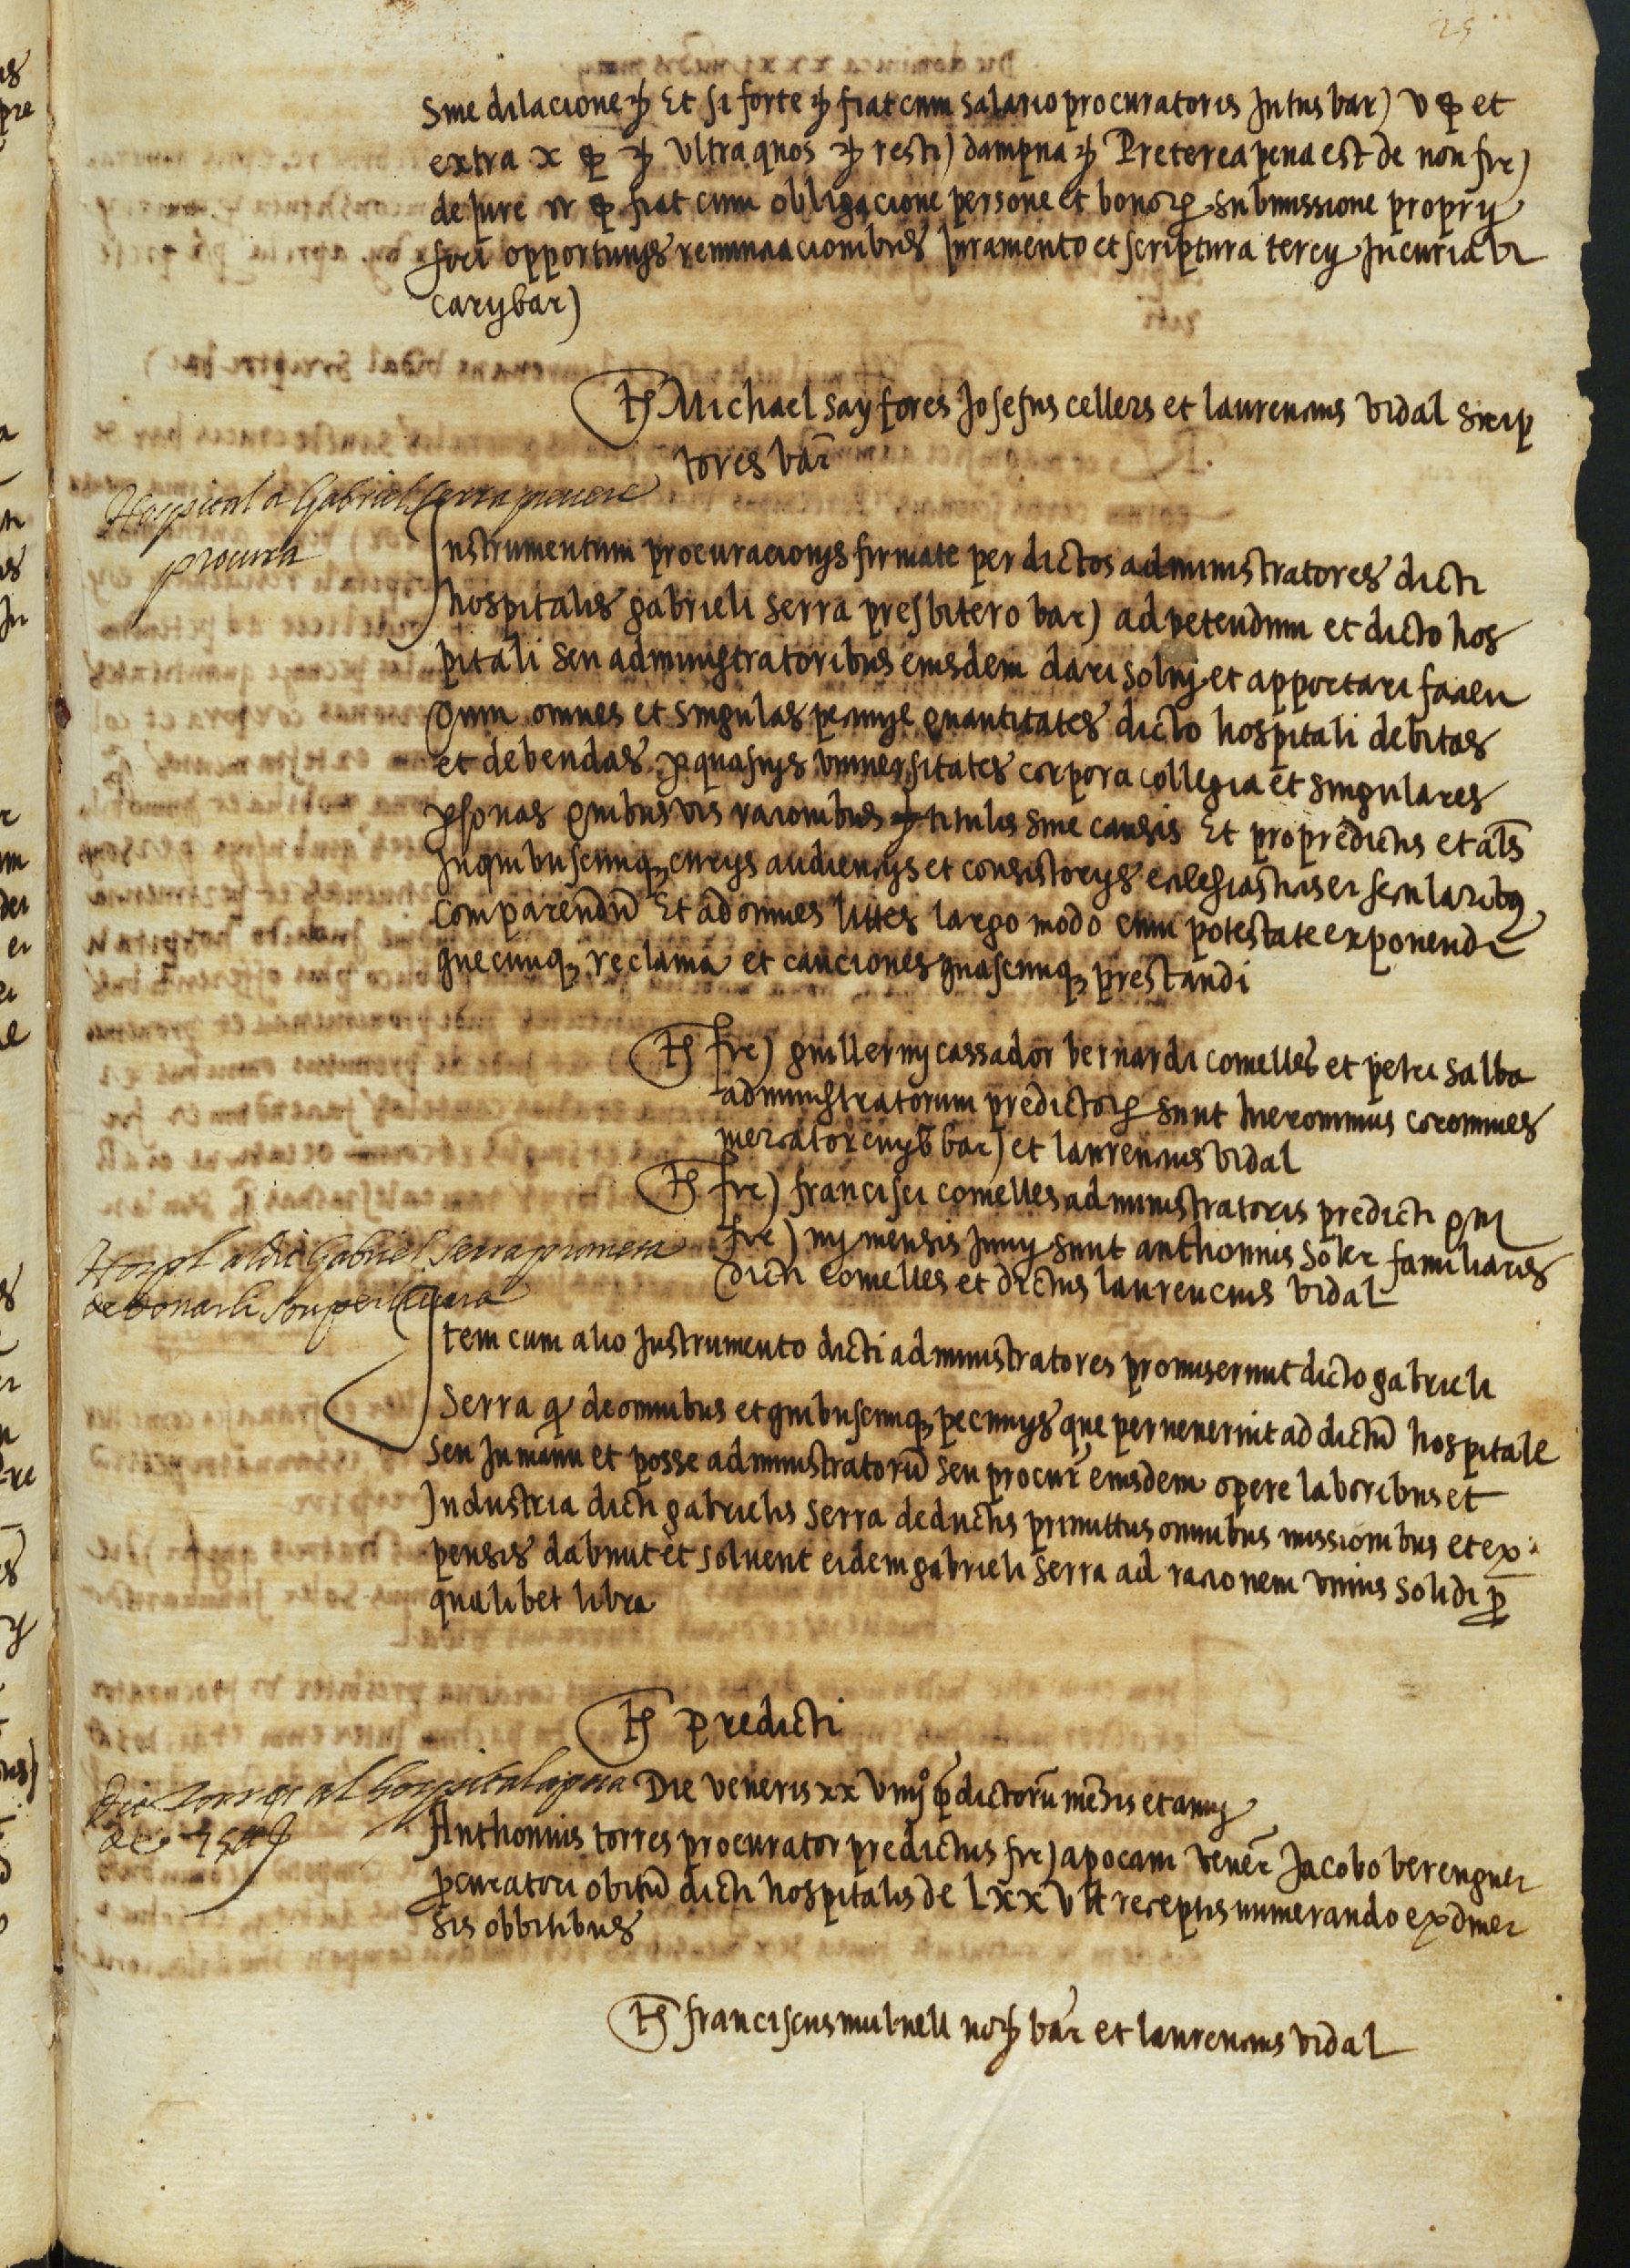 25
sine dilacione etc Et si forte etc fiat cum salario procuratoris Intus bar) v ss et
extra x ss etc Ultra quos etc resti) dampna etc Preterea pena est de non fir)
de jure fiat cum obligacione persone et bonorum submissione proprij
fori opportunis renunciacionibus Juramento et scriptura tercij In curia vi
carij bar)
Ts Michael say fores Josefus cellers et laurencius vidal scrip
tores bar
Hospital a Gabriel serra prevere
procura
Instrumentum procuracionis firmate per dictos administratores dicti
hospitalis gabrieli serra presbitero bar) ad petendum et dicto hos
pitali seu administratoribus eiusdem dari solvi et apportari facien
dum omnes et singulas pecunie quantitates dicto hospitali debitas
et debendas per quasvis universitates corpora collegia et singulares
personas quibusvis racionibus titulis sine causis Et pro predictis et als
In quibuscumque curijs audiencijs et consistorijs ecclesiasticis et secularibus
comparendum Et ad omnes littes largo modo cum potestate exponendi
quecumque reclama et cauciones quascumque prestandi
Ts fir) guillermj cassador bernardi comelles et petri salba
administratorum predictorum sunt hieronimus coromines
mercator civis bar) et laurencius vidal
Ts fir) francisci comelles administratoris predicti qui
fir) iiij mensis Junij sunt anthonius soler familiaris
dicti comelles et dictus laurencius vidal
Hospl al dit Gabriel serra promesa
de donarli sou per lliura
Item cum alio Instrumento dicti administratores promiserunt dicto gabrieli
serra quod de omnibus et quibuscumque pecunijs que pervenerint ad dictum hospitale
seu In manu et posse administratorum seu procur eiusdem opere laboribus et
Industria dicti gabrielis serra deductis primittus omnibus missionibus et ex
pensis dabunt et solvent eidem gabrieli serra ad racionem unius solidi pro
qualibet libra
Ts predicti
Die Veneris xx viiij predictorum mensis et anny
al hospital apoca
de 75 ll
Anthonius torres procurator predictus fir) apocam Vener Jacobo berenguer
procuratori obituum dicti hospitalis de Lxx V ll receptis numerando ex diver
sis obbitibus
Ts franciscus mulnell not bar et laurencius vidal